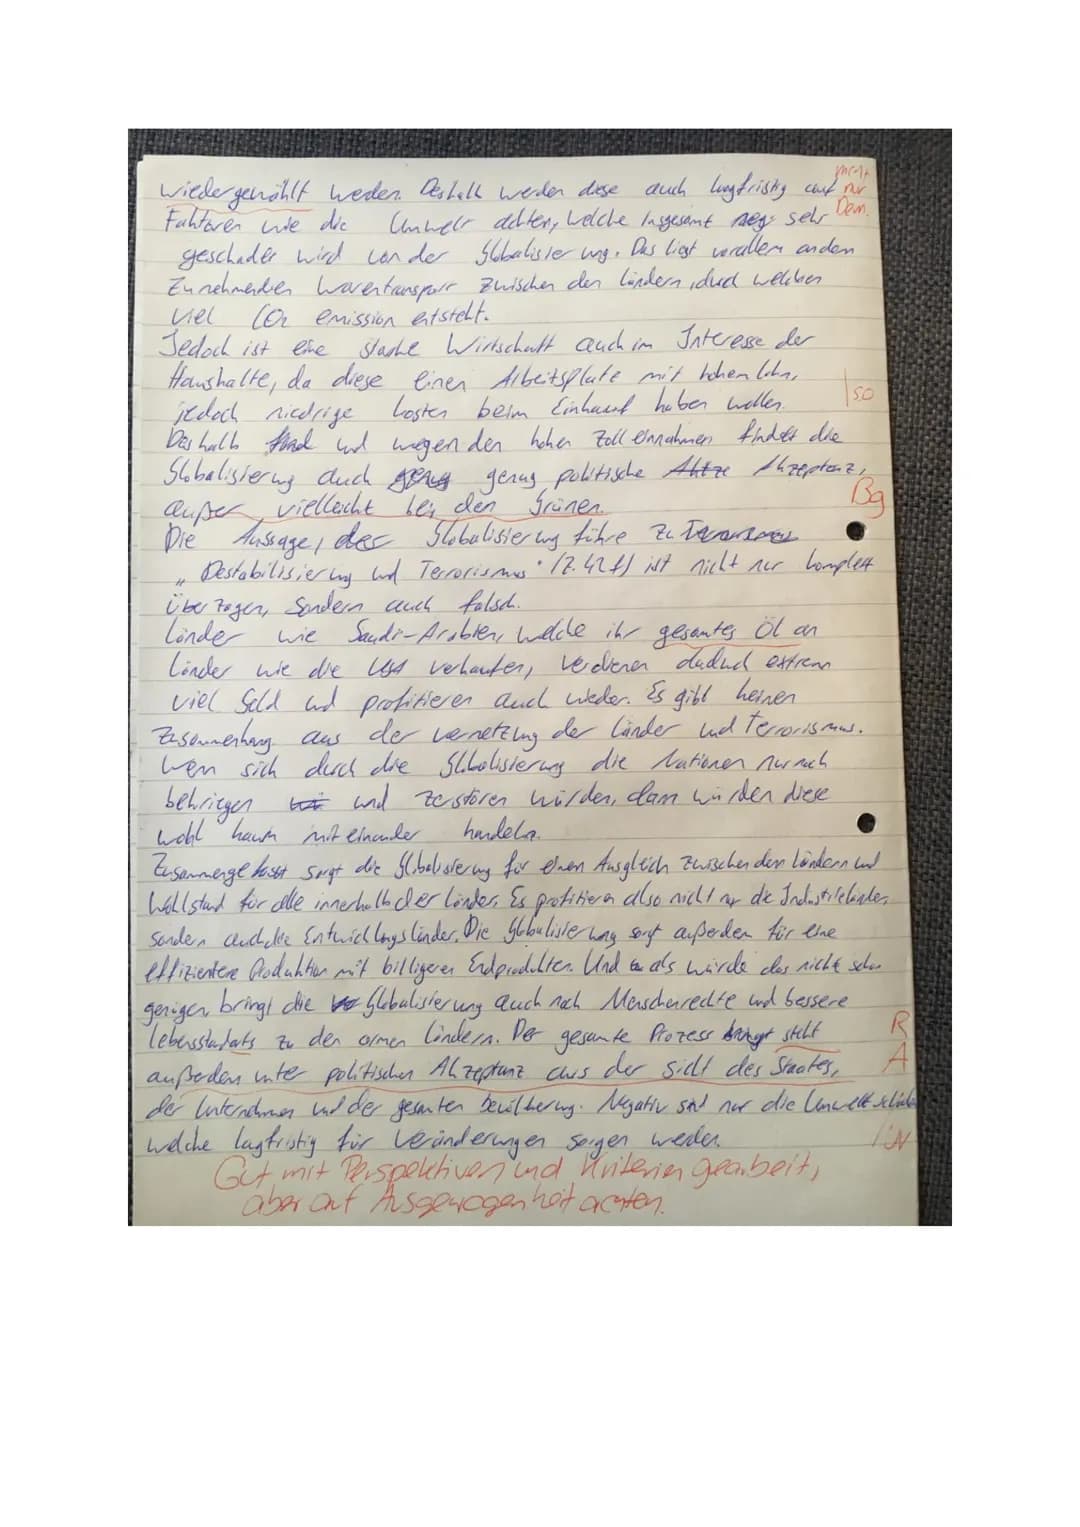 wiedergewählt werden. Deshalb werden diese auch langfristig auf nicht nur Dem.
Faktoren wie die Umwelt achten, welche Insgesamt neg. sehr
geschadet wird von der Globalisierung. Das liegt vorallem an dem
Zunehmenden Warentransport zwischen den Ländern, durch welchen
viel CO2 emission entsteht.
Jedoch ist eine starke Wirtschaft auch im Interesse der
Haushalte, da diese einen Arbeitsplatz mit hohem Lohn,
jedoch niedrige kosten beim Einkauf haben wollen. so
Deshalb find und wegen den hohen Zolleinnahmen findet die
Globalisierung auch genug genug politische Aktze Akzeptanz,
außer vielleicht bei den Grünen. Bg
Die Aussage, der Globalisierung führe zu Terrorismus
"Destabilisierung und Terrorismus" (Z. 42 f) ist nicht nur komplett
überzogen, sondern auch falsch.
Länder wie Saudi-Arabien, welche ihr gesamtes Öl an
Länder wie die USA verkaufen, verdienen dadurch extrem
viel Geld und profitieren auch wieder. Es gibt keinen
Zusammenhang aus der vernetzung der Länder und Terrorismus.
Wenn sich durch die Globalisierung die Nationen nur noch
bekriegen und zerstören würden, dann würden diese
wohl kaum miteinander handeln.
Zusammengefasst sorgt die Globalisierung für einen Ausgleich zwischen den Ländern und
Wohlstand für alle innerhalb der Länder. Es profitieren also nicht nur die Industrieländer,
sondern auch die Entwicklungsländer. Die Globalisierung sorgt außerdem für eine
effizientere Produktion mit billigeren Endprodukten. Und als würde das nicht schon
genügen, bringt die Globalisierung auch noch Menschenrechte und bessere
lebensstandarts zu den armen Ländern. Der gesamte Prozess bringt steht R
außerdem unter politischer Akzeptanz aus der sicht des Staates, A
der Unternehmen und der gesamten bevölkerung. Negativ sind nur die Umweltschäden
welche langfristig für Veränderungen sorgen werden.
Gut mit Perspektiven und Kriterien gearbeit,
aber auf Ausgewogenheit achten.